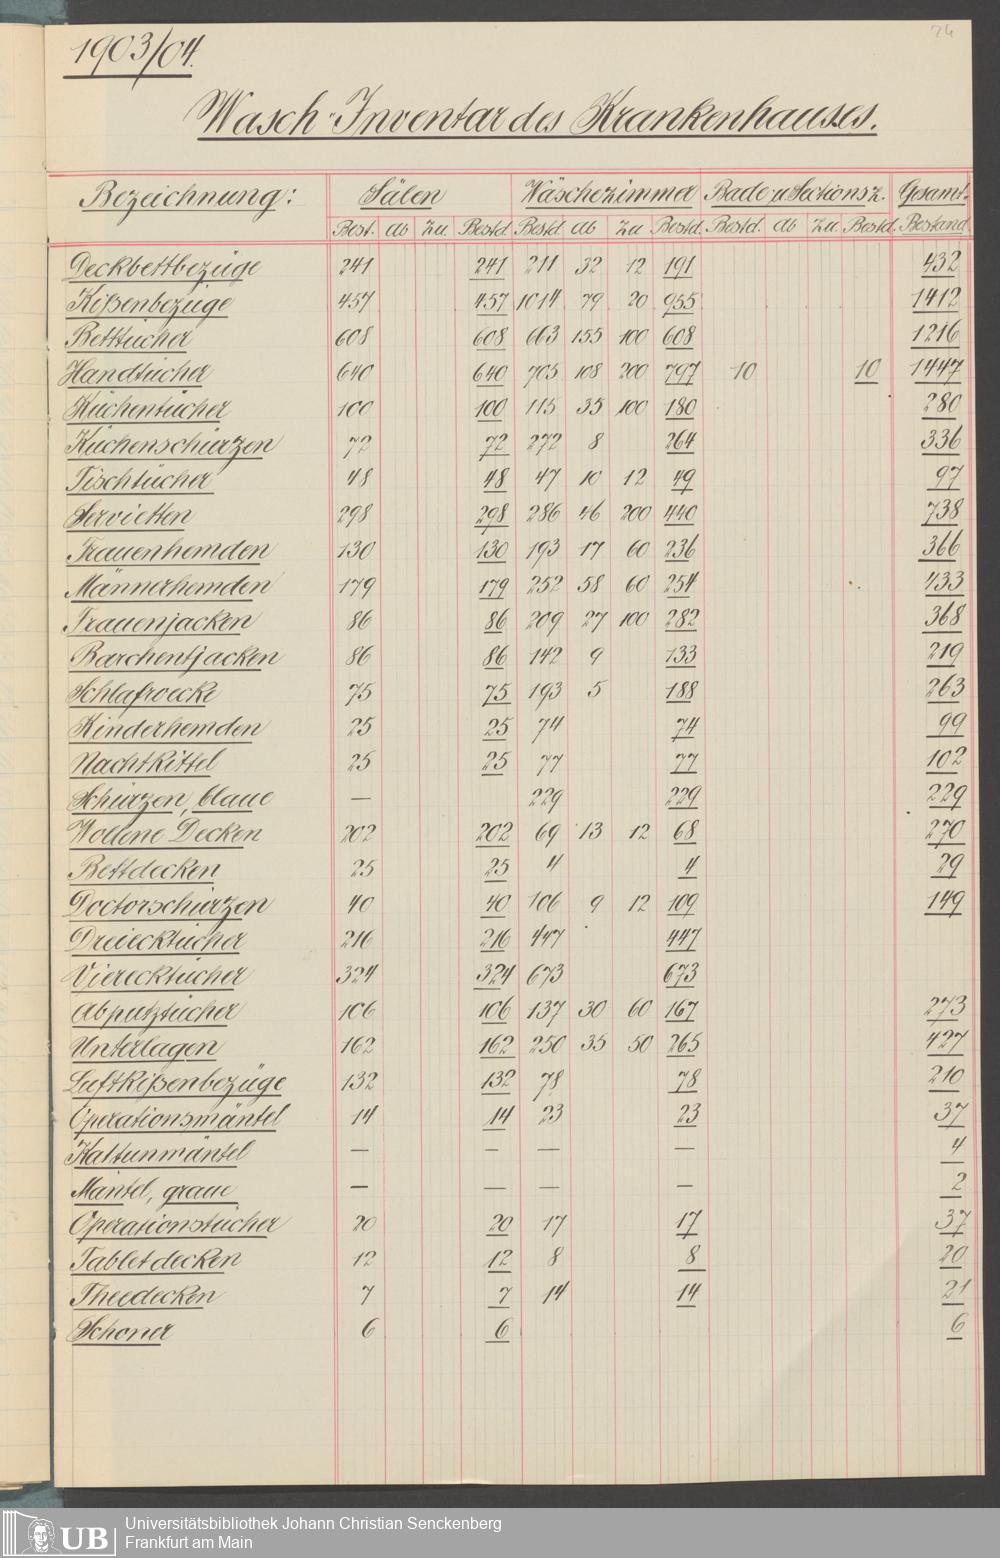 24
1903/04.
Wasch-Inventar des Krankenhauses.
Bezeichnung: Sälen Wäschezimmer Bade- u. Sectionsz. Gesamt-
Best. ab zu Bestd. Bestd. ab zu Bestd. Bestd. ab zu Bestd. Bestand
Deckbettbezüge 241 241 211 32 12 191 432
Kißenbezüge 457 457 1014 79 20 955 1412
Betttücher 608 608 663 155 100 608 1216
Handtücher 640 640 705 108 200 797 10 10 1447
Küchentücher 100 100 115 35 100 180 280
Küchenschürzen 72 72 272 8 264 336
Tischtücher 48 48 47 10 12 49 97
Servietten 298 298 286 46 200 440 738
Frauenhemden 130 130 193 17 60 236 366
Männerhemden 179 179 252 58 60 254 433
Frauenjacken 86 86 209 27 100 282 368
Barchentjacken 86 86 142 9 133 219
Schlafroecke 75 75 193 5 188 263
Kinderhemden 25 25 74 74 99
Nachtkittel 25 25 77 77 102
Schürzen, blaue — 229 229 229
Wollene Decken 202 202 69 13 12 68 270
Bettdecken 25 25 4 4 29
Doctorschürzen 40 40 106 9 12 109 149
Dreiecktücher 216 216 447 447
Vierecktücher 324 324 673 673
Abputztücher 106 106 137 30 60 167 273
Unterlagen 162 162 250 35 50 265 427
Luftkißenbezüge 132 132 78 78 210
Operationsmäntel 14 14 23 23 37
Kattunmäntel — — — — 4
Mäntel, graue — — — — 2
Operationstücher 20 20 17 17 37
Tabletdecken 12 12 8 8 20
Theedecken 7 7 14 14 21
Schoner 6 6 6
UB
Universitätsbibliothek Johann Christian Senckenberg
Frankfurt am Main